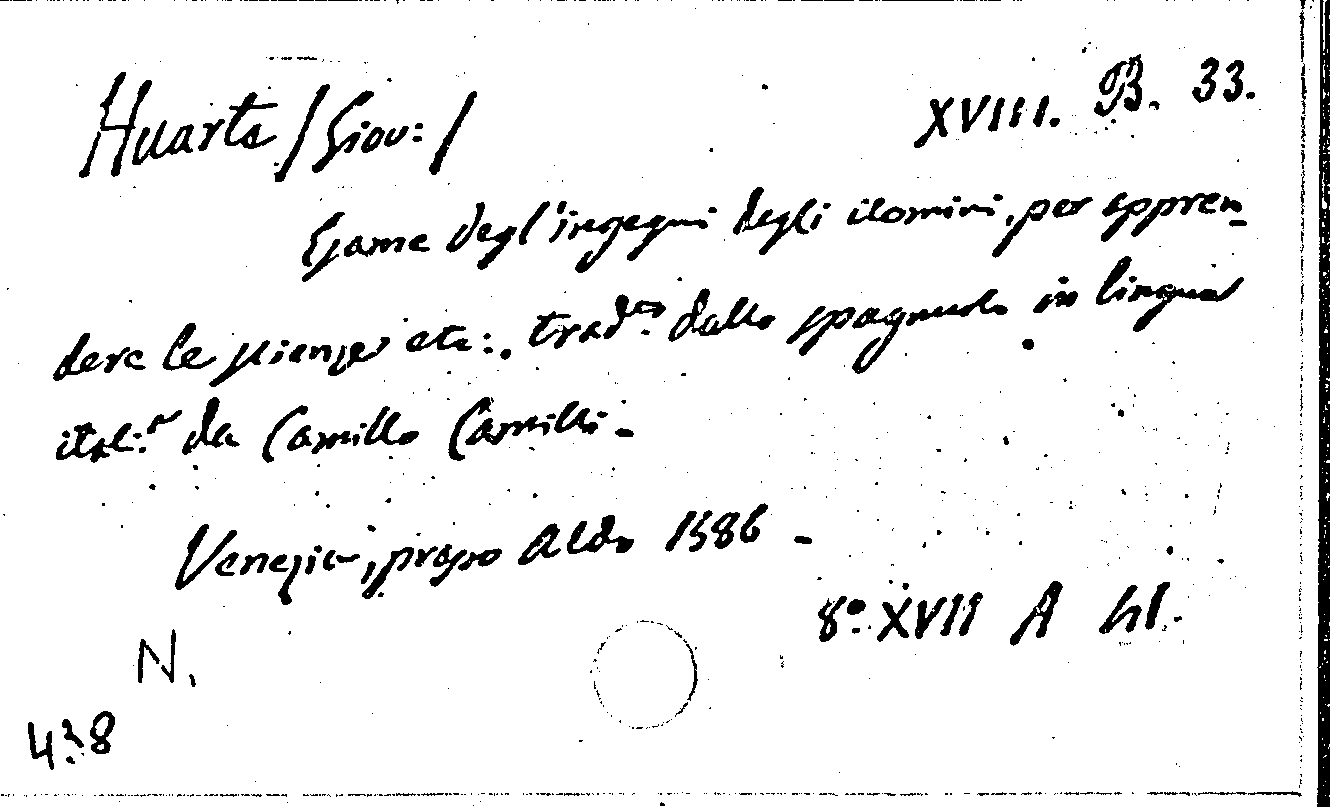 Huarte /Giov:/
XVIII. B. 33.
Esame degl'ingegni degli uomini, per appren-
dere le scienze etc:. trad.to dallo spagnuolo in lingua
ital:a da Camillo Camilli.
Venezia, presso Aldo 1586 -
8º. XVII A 41.
N.
438